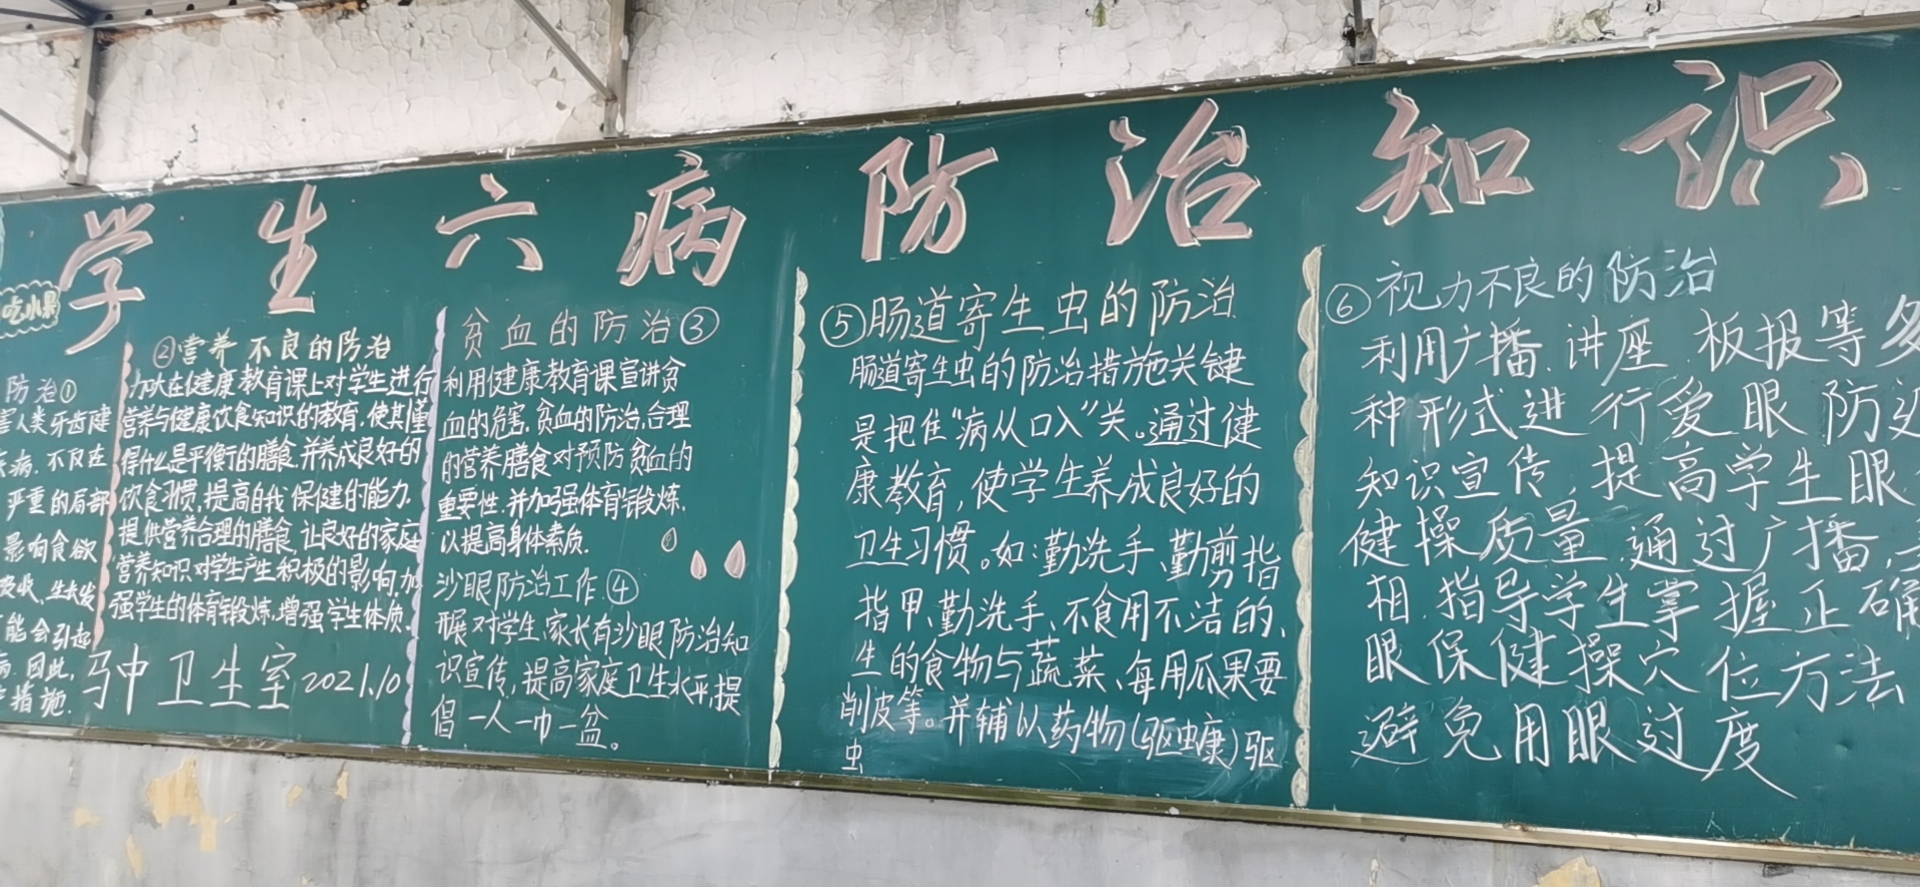 学生六病防治知识
吃小果
防治①
害人类牙齿健
疾病.不仅在
严重的局部
影响食欲
吸收、生长发
能会引起
病.因此,
措施.
②营养不良的防治
力大在健康教育课上对学生进行
营养与健康饮食知识的教育,使其懂
得什么是平衡的膳食.并养成良好的
饮食习惯,提高自我保健的能力.
提供营养合理的膳食,让良好的家庭
营养知识对学生产生积极的影响,加
强学生的体育锻炼,增强学生体质.
马中卫生室2021.10
贫血的防治③
利用健康教育课宣讲贫
血的危害.贫血的防治,合理
的营养膳食对预防贫血的
重要性.并加强体育锻炼.
以提高身体素质.
沙眼防治工作.④
开展对学生、家长有沙眼防治知
识宣传,提高家庭卫生水平,提
倡一人一巾一盆。
⑤肠道寄生虫的防治
肠道寄生虫的防治措施关键
是把住“病从口入”关。通过健
康教育,使学生养成良好的
卫生习惯。如:勤洗手、勤剪指
指甲、勤洗手、不食用不洁的、
生的食物与蔬菜、每用瓜果要
削皮等。并辅以药物(驱虫康)驱
虫
⑥视力不良的防治
利用广播.讲座.板报等多
种形式进行爱眼防近
知识宣传,提高学生眼
健操质量.通过广播,
相.指导学生掌握正确
眼保健操穴位方法
避免用眼过度